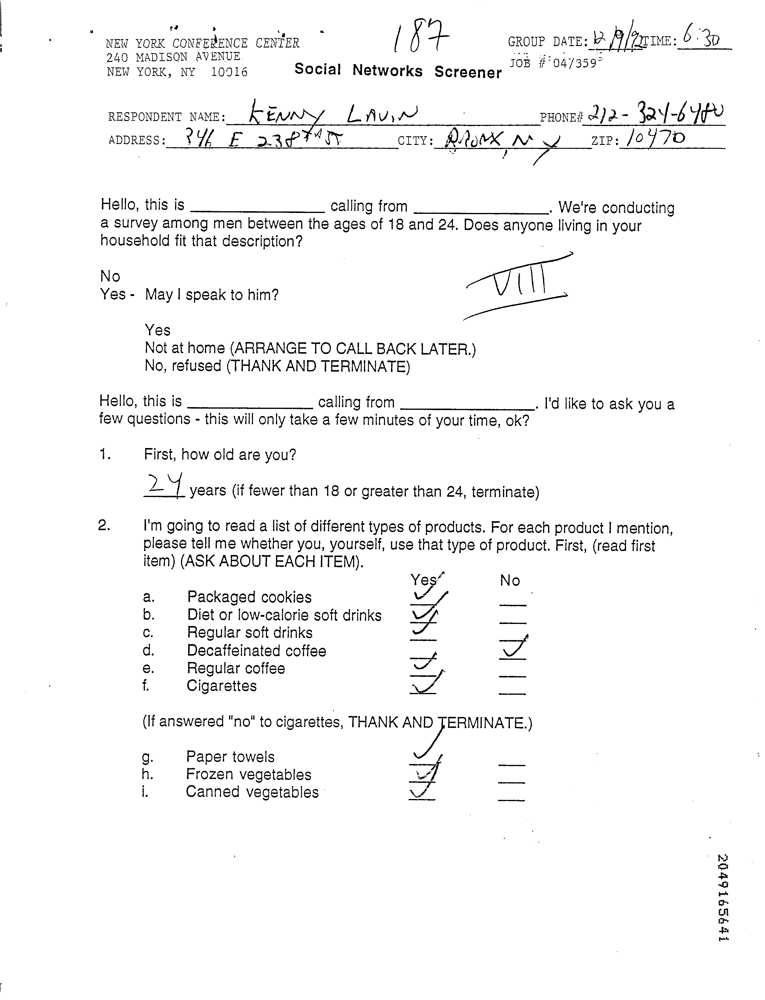 187
NEW YORK CONFERENCE CENTER GROUP DATE: 12/9/92 TIME: 6:30
240 MADISON AVENUE JOB # 04/359
NEW YORK, NY 10016 Social Networks Screener
RESPONDENT NAME: KENNY LAVIN PHONE# 212-324-6480
ADDRESS: 346 E 238TH ST CITY: BRONX, NY ZIP: 10470
Hello, this is calling from . We're conducting
a survey among men between the ages of 18 and 24. Does anyone living in your
household fit that description?
No
Yes - May I speak to him?
VIII
Yes
Not at home (ARRANGE TO CALL BACK LATER.)
No, refused (THANK AND TERMINATE)
Hello, this is calling from . I'd like to ask you a
few questions - this will only take a few minutes of your time, ok?
1. First, how old are you?
24 years (if fewer than 18 or greater than 24, terminate)
2. I'm going to read a list of different types of products. For each product I mention,
please tell me whether you, yourself, use that type of product. First, (read first
item) (ASK ABOUT EACH ITEM).
Yes No
a. Packaged cookies
b. Diet or low-calorie soft drinks
c. Regular soft drinks
d. Decaffeinated coffee
e. Regular coffee
f. Cigarettes
(If answered "no" to cigarettes, THANK AND TERMINATE.)
g. Paper towels
h. Frozen vegetables
i. Canned vegetables
2049165641